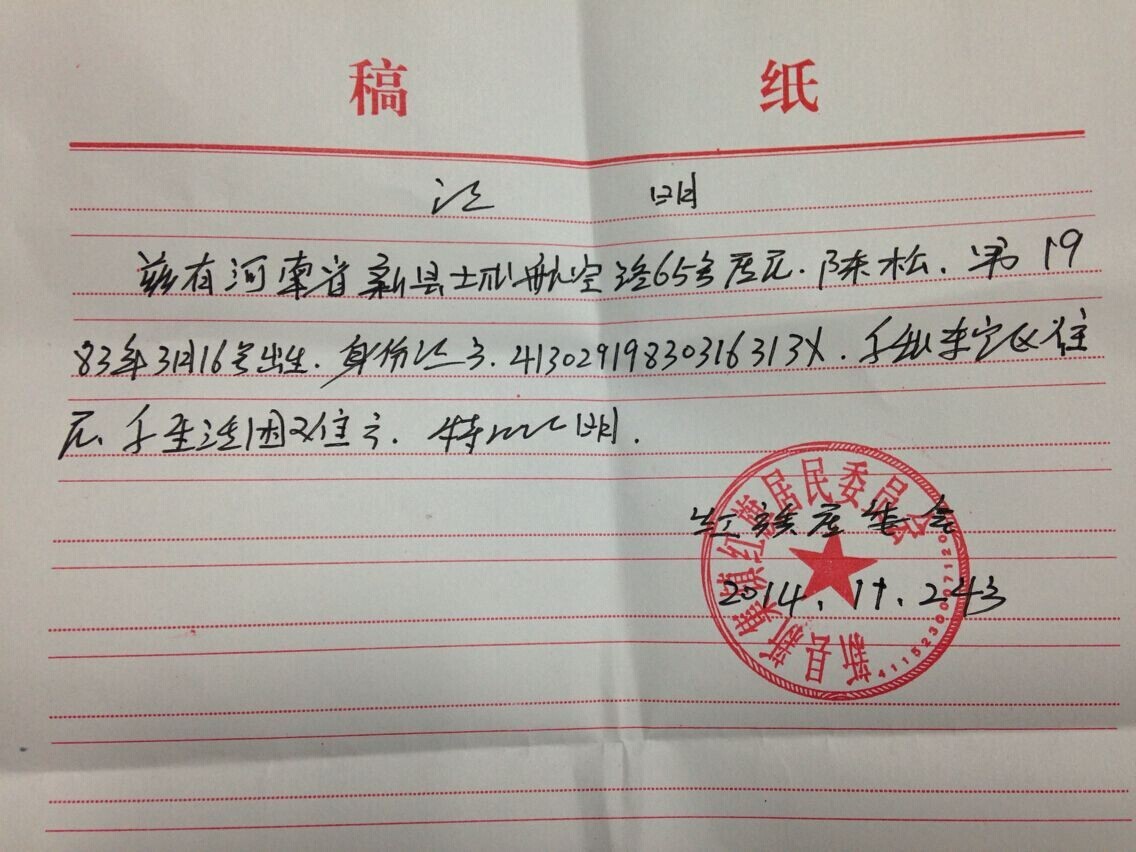 稿 纸
证 明
兹有河南省新县土城航空路65号居民.陈松.男 19
83年3月16号出生.身份证号.41302919830316313X.
属生活困难住户.特此证明.
红旗居委会
2014.11.24号
新县新集镇红旗居民委员会
4115230007120